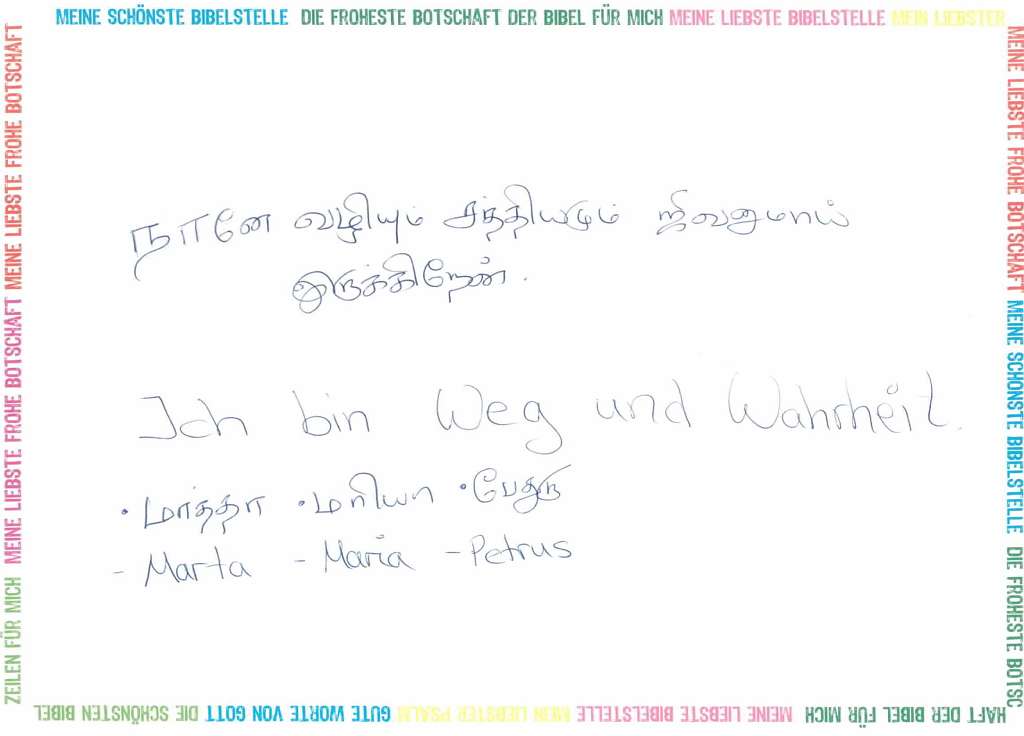 MEINE SCHÖNSTE BIBELSTELLE DIE FROHESTE BOTSCHAFT DER BIBEL FÜR MICH MEINE LIEBSTE BIBELSTELLE MEIN LIEBSTER
MEINE LIEBSTE FROHE BOTSCHAFT MEINE SCHÖNSTE BIBELSTELLE DIE FROHESTE BOTSC
HAFT DER BIBEL FÜR MICH MEINE LIEBSTE BIBELSTELLE MEIN LIEBSTER PSALM GUTE WORTE VON GOTT DIE SCHÖNSTEN BIBEL
ZEILEN FÜR MICH MEINE LIEBSTE FROHE BOTSCHAFT MEINE LIEBSTE FROHE BOTSCHAFT
நானே வழியும் சத்தியமும் ஜிவனுமாய்
இருக்கிறேன்.
Ich bin Weg und Wahrheit.
· மார்த்தா · மரியா · பேதுரு
- Marta - Maria - Petrus